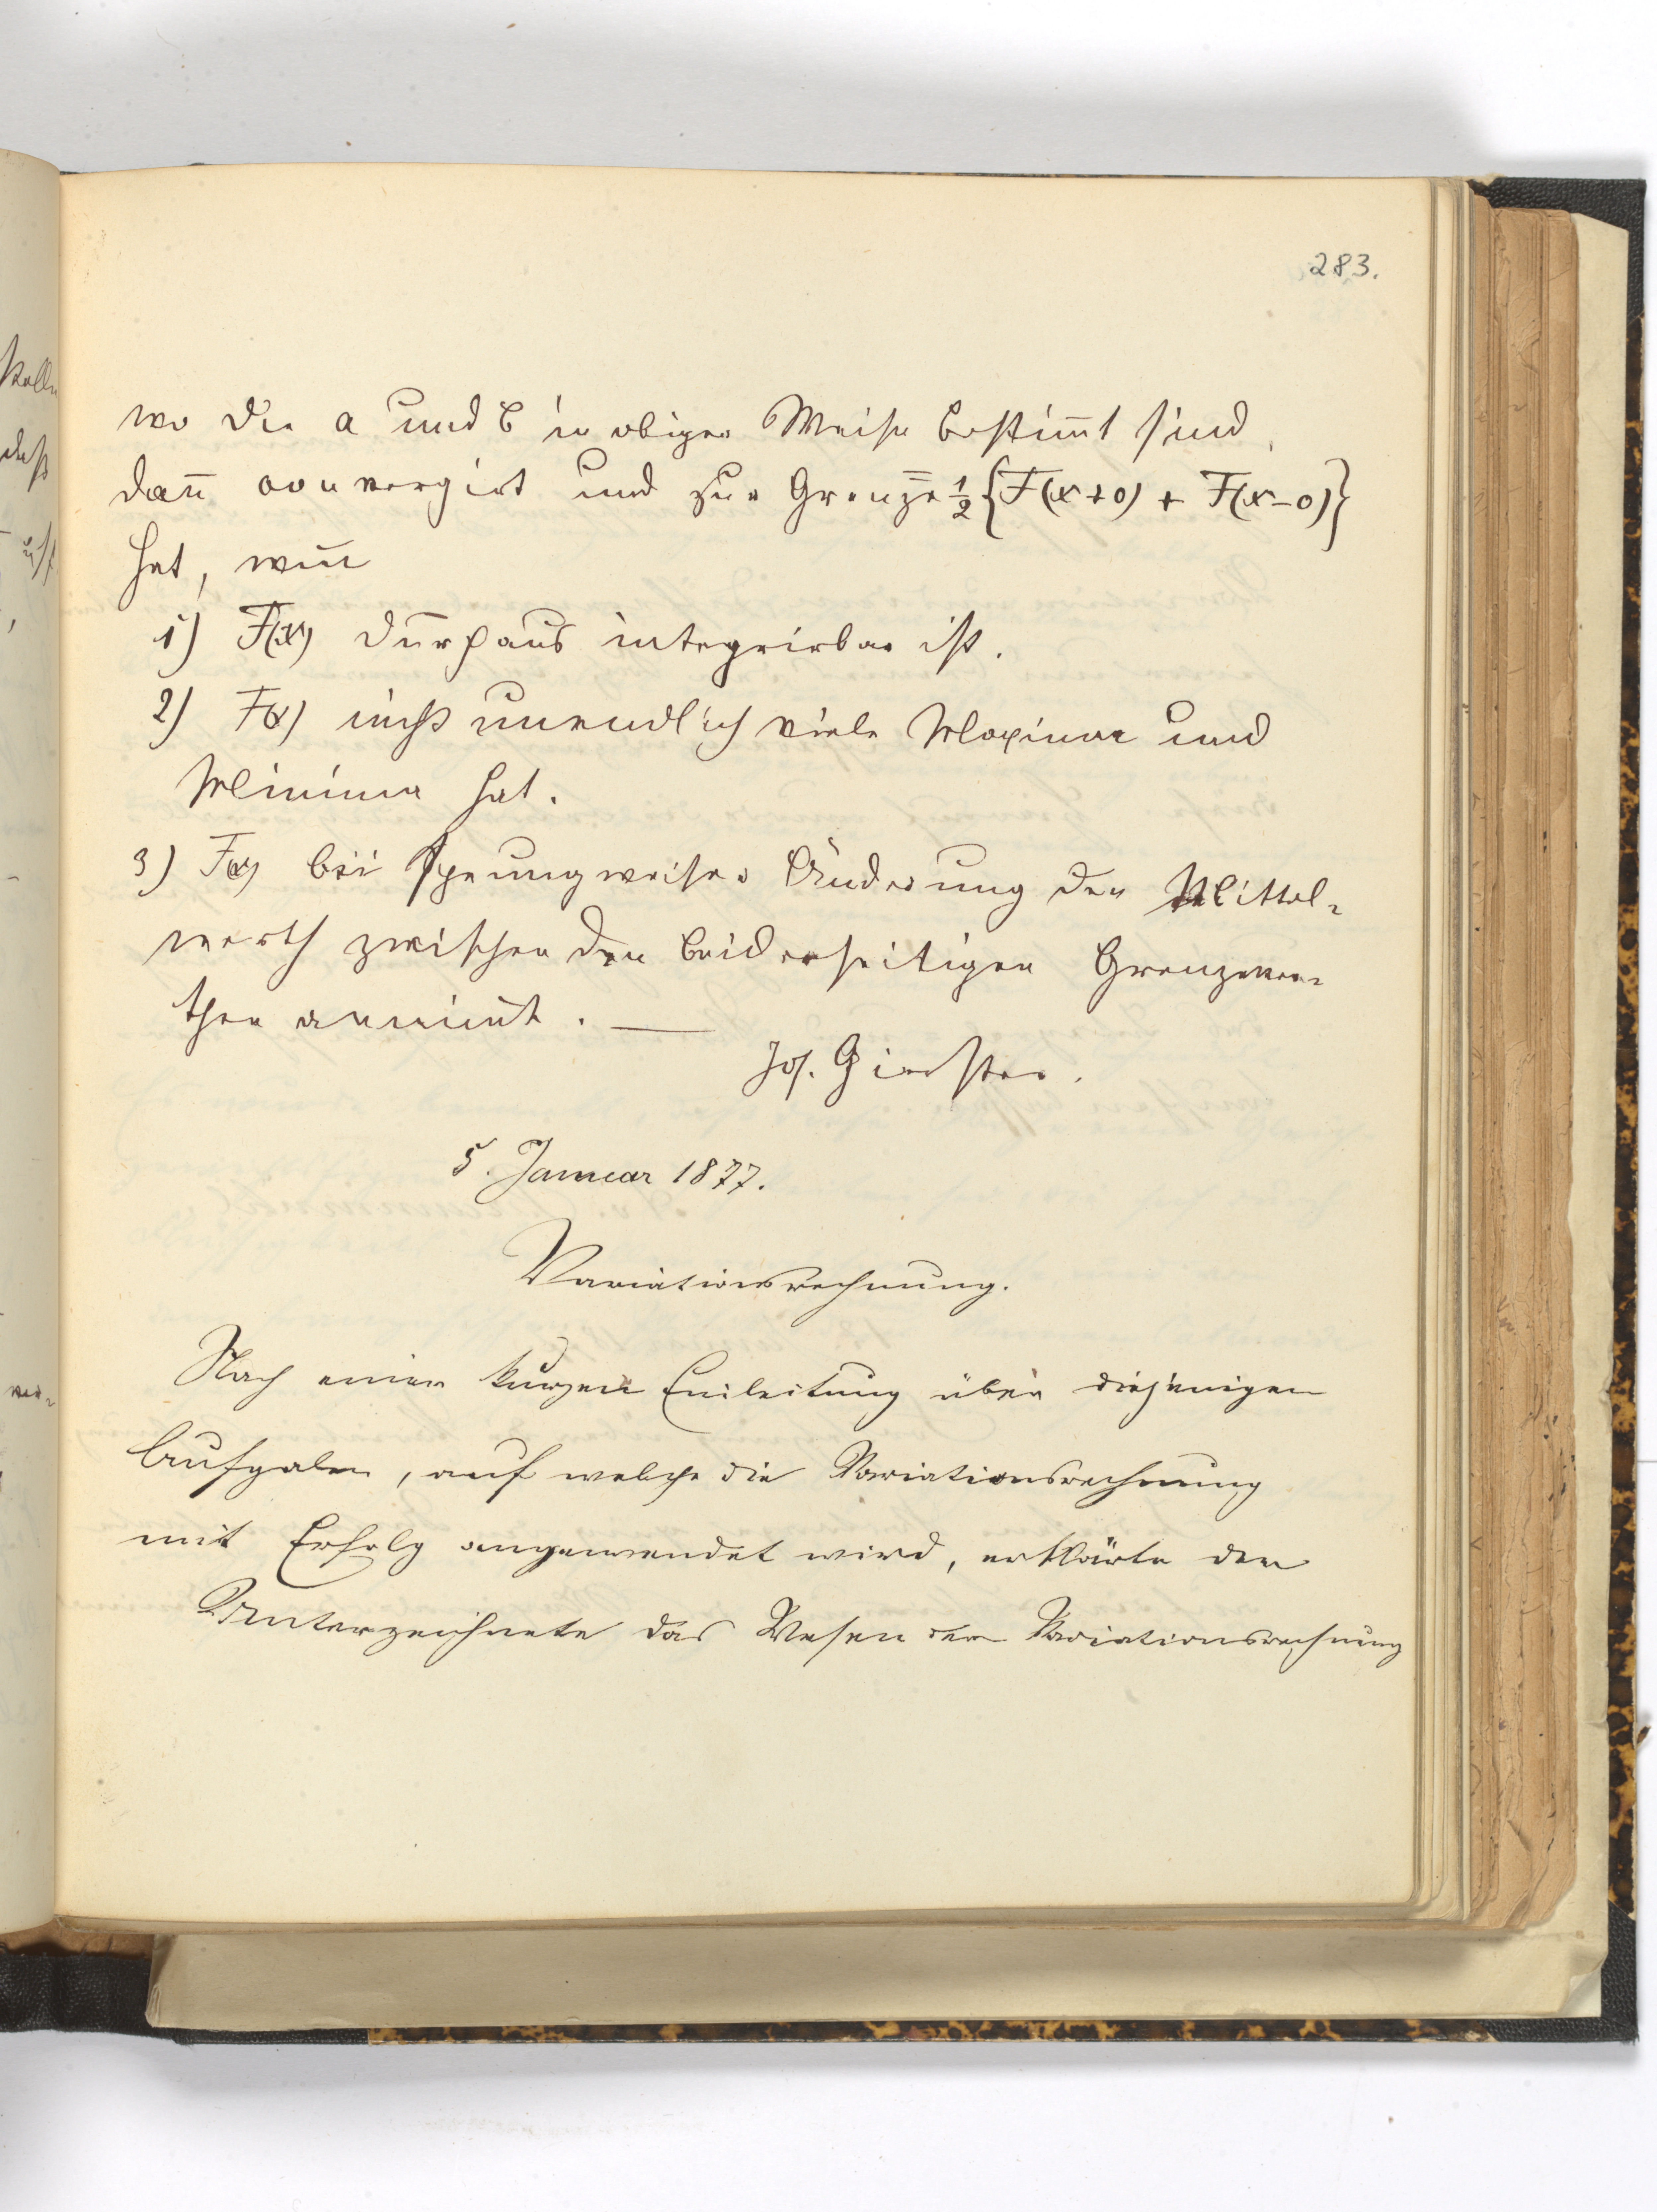 283.
wo die a und b in obiger Weise bestim̅t sind,
dan̅ convergirt und zur Grenze ½{F(x+0) + F(x-0)}
hat, wen̅
1) F(x) durchaus integrirbar ist.
2) F(x) nicht unendlich viele Maxima und
Minima hat.
3) F(x) bei sprungweiser Änderung den Mittel-
werth zwischen den beiderseitigen Grenzwer-
then annim̅t. —
Jos. Gierster.
5. Januar 1877.
Variationsrechnung.
Nach einer kurzen Einleitung über diejenigen
Aufgaben, auf welche die Variationsrechnung
mit Erfolg angewendet wird, erklärte der
Unterzeichnete das Wesen der Variationsrechnung